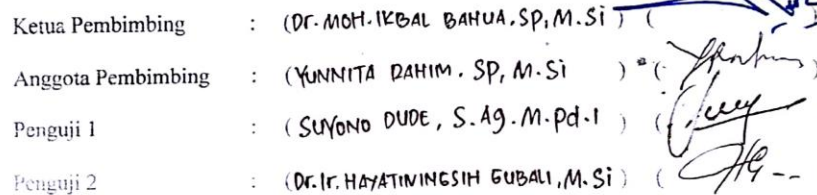 Ketua Pembimbing : (Dr. MOH. IKBAL BAHUA, SP, M.Si) ( )
Anggota Pembimbing : (YUNNITA RAHIM. SP, M.Si ) (
Penguji 1 : (SUYONO DUDE, S.Ag. M.Pd.I ) (
Penguji 2 : (Dr. Ir. HAYATININGSIH GUBALI, M.Si) (